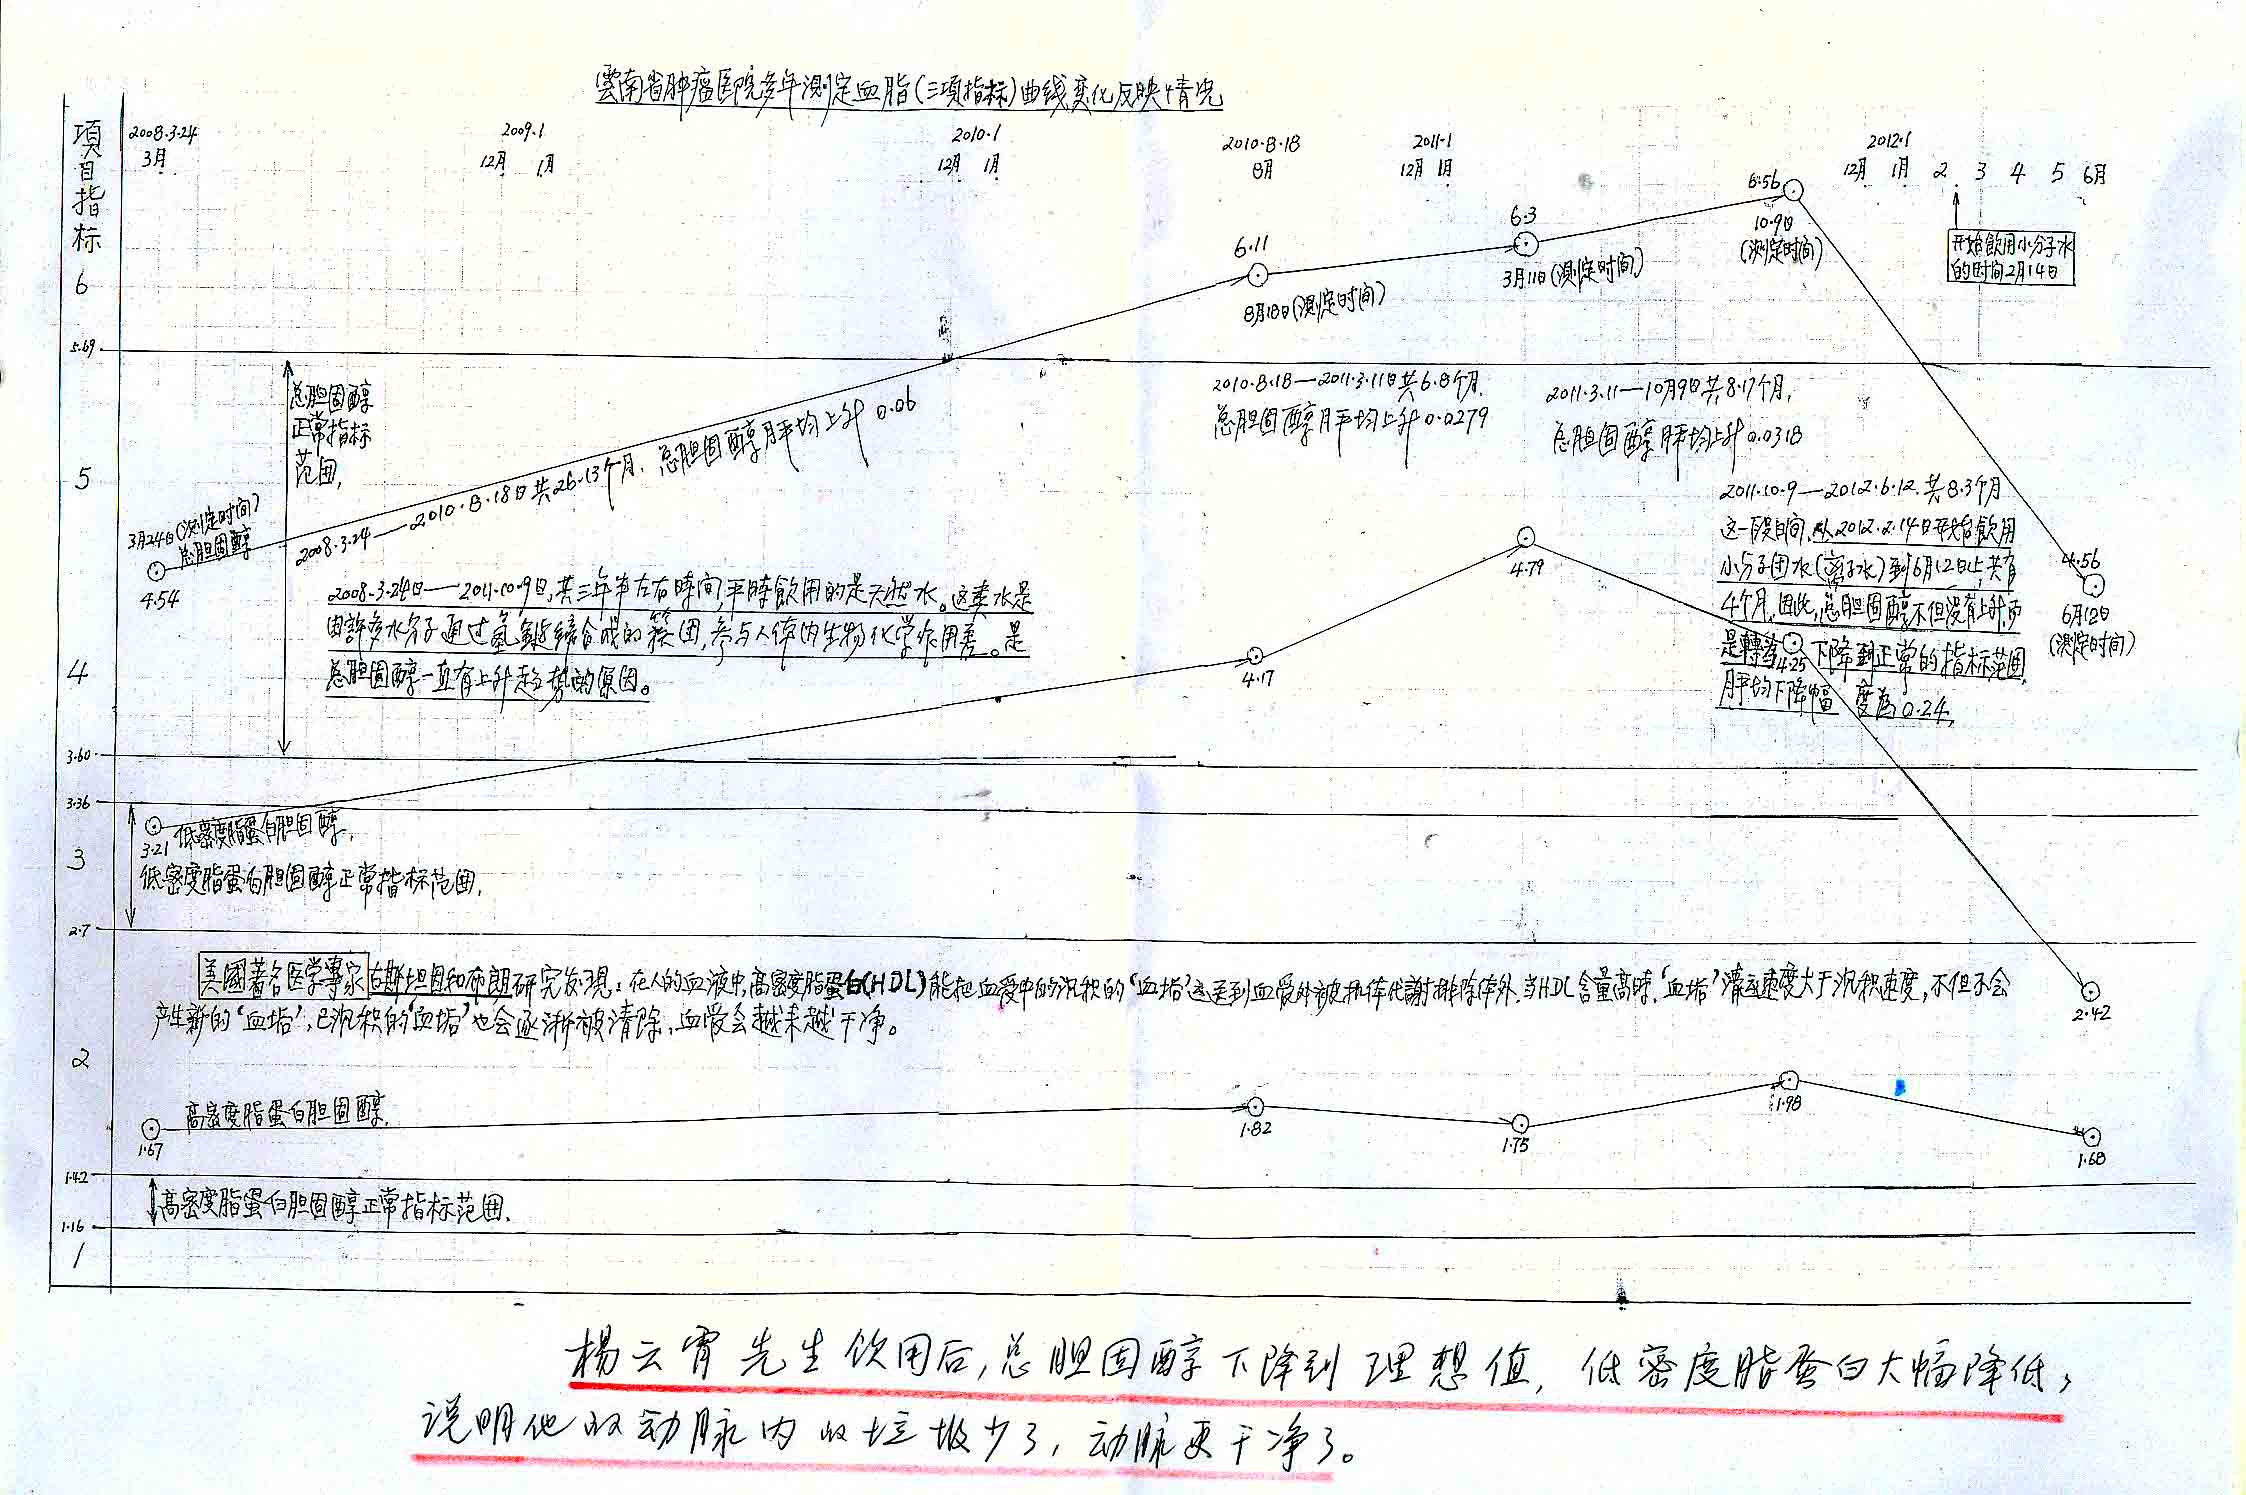 雲南省肿瘤医院多年測定血脂(三項指标)曲线变化反映情况
項目指标
2008.3.24
3月
2009.1
12月 1月
2010.1
12月 1月
2010.8.18
8月
2011.1
12月 1月
2012.1
12月 1月 2 3 4 5 6月
6.56
10.9日
(測定时间)
6.3
3月11日(測定时间)
6.11
8月18日(測定时间)
开始飲用小分子水
的时间2月14日
6
5.69
总胆固醇
正常指标
范囲,
2010.8.18—2011.3.11日共6.8个月.
总胆固醇月平均上升0.0279
2011.3.11—10月9日共8.17个月,
总胆固醇月平均上升0.0318
5
2008.3.24—2010.8.18日共26.13个月. 总胆固醇月平均上升0.06
3月24日(測定时间)
总胆固醇
4.54
2011.10.9—2012.6.12.共8.3个月
这一段时间,从2012.2.14日开始飲用
小分子团水(离子水)到6月12日止共有
4个月,因此,总胆固醇不但没有上升,而
是轉为 下降到正常的指标范囲,
月平均下降幅 度為0.24,
4.25
4.56
6月12日
(測定时间)
4.79
2008.3.24日——2011.10.9日,共三年半左右時间,平時飲用的是天然水。这类水是
由許多水分子通过氢鍵締合成的簇团,参与人体内生物化学作用差。是
总胆固醇一直有上升趋势的原因。
4
4.17
3.60
3.36
3.21 低密度脂蛋白胆固醇,
3
低密度脂蛋白胆固醇正常指标范囲,
2.7
美國著名医学專家古斯坦因和布朗研究发現:在人的血液中,高密度脂蛋白(HDL)能把血管中的沉积的‘血垢’运送到血管外被机体代謝排除体外.当HDL含量高時,‘血垢’清运速度大于沉积速度,不但不会
产生新的‘血垢’,已沉积的‘血垢’也会逐漸被清除,血管会越来越干净。
2.42
2
高密度脂蛋白胆固醇.
1.67
1.82
1.75
1.98
1.68
1.42
高密度脂蛋白胆固醇正常指标范囲.
1.16
1
楊云霄先生饮用后,总胆固醇下降到理想值,低密度脂蛋白大幅降低,
说明他的动脉内的垃圾少了,动脉更干净了。